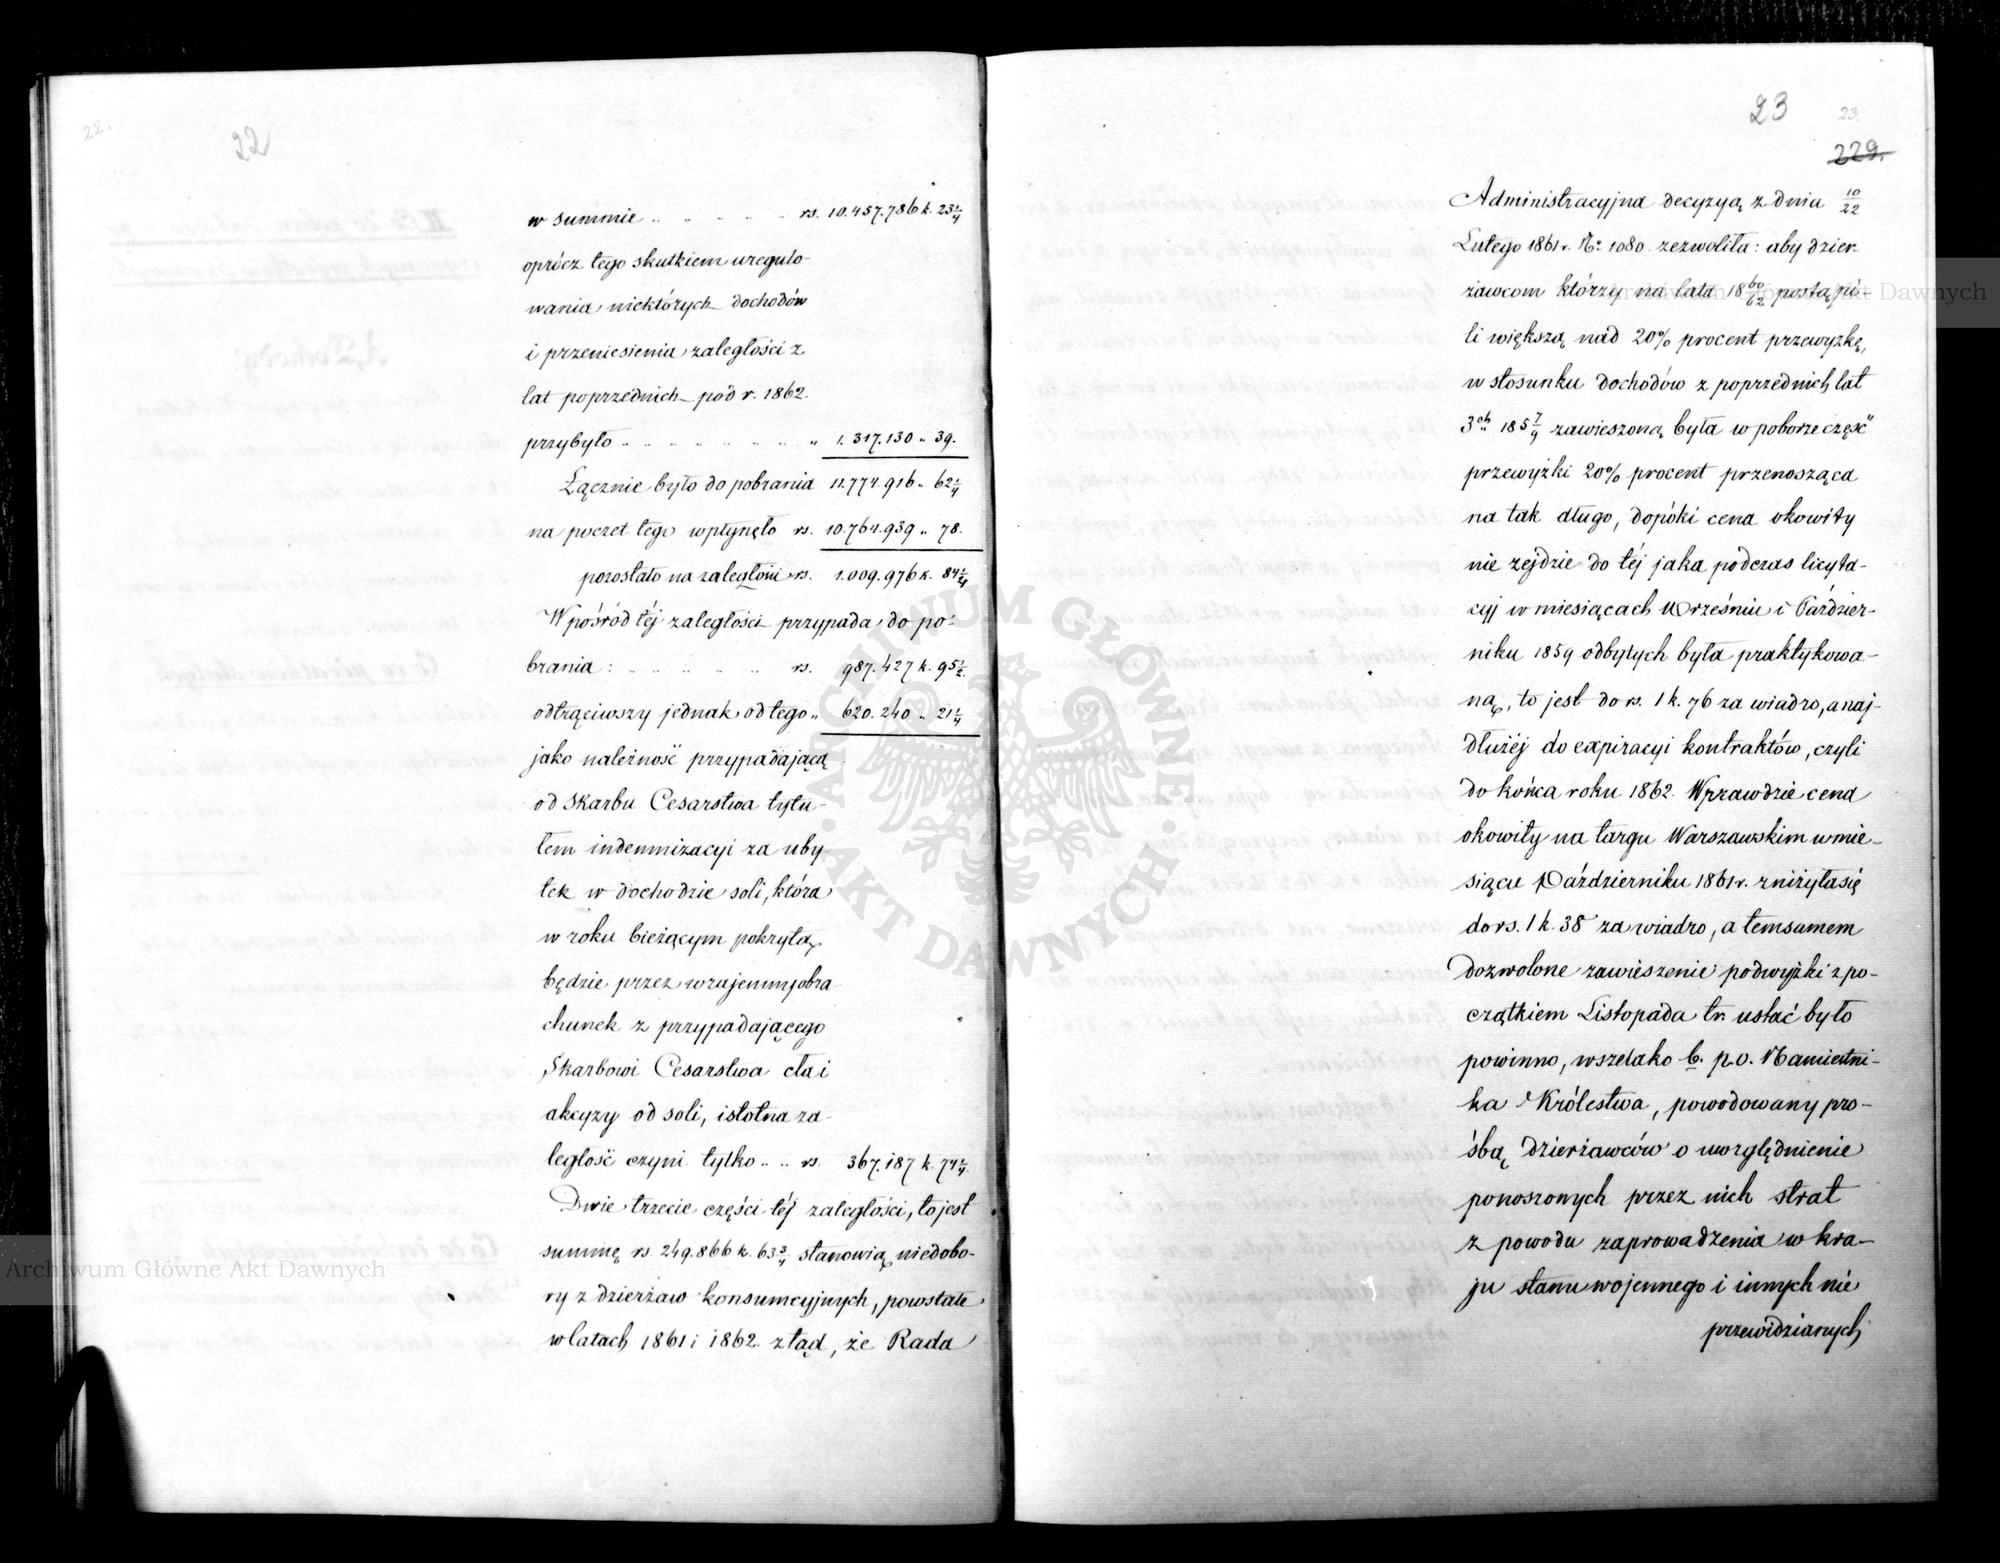 22.
22
w summie .. .. .. .. .. rs. 10.457.786 k. 23 1/4
oprócz tego skutkiem uregulo-
wania niektórych dochodów
i przeniesienia zaległości z
lat poprzednich pod r. 1862.
przybyło .. .. .. .. .. .. .. „ 1.317.130 „ 39.
Łącznie było do pobrania 11.774.916 „ 62 1/4
na poczet tego wpłynęło rs. 10.764.939 „ 78.
pozostało na zaległości rs. 1.009.976 k. 84 1/4
Wpośród téj zaległości przypada do po-
brania: .. .. .. .. rs. 987.427 k. 95 1/2
odtrąciwszy jednak od tego „ 620.240 „ 21 1/4
jako należność przypadającą
od Skarbu Cesarstwa tytu-
łem indemnizacyi za uby-
tek w dochodzie soli, która
w roku bieżącym pokrytą
będzie przez wzajemny obra-
chunek z przypadającego
Skarbowi Cesarstwa cła i
akcyzy od soli, istotna za-
ległość czyni tylko .. .. rs. 367.187 k. 74 1/4.
Dwie trzecie części téj zaległości, to jest
summę rs. 249.866 k. 63 3/4 stanowią niedobo-
ry z dzierżaw konsumcyjnych, powstałe
w latach 1861 i 1862. ztąd, że Rada
23
23.
229.
Administracyjna decyzyą z dnia 10/22
Lutego 1861 r. No 1080 zezwoliła: aby dzier-
żawcom którzy na lata 18 60/62 postąpi-
li większą nad 20% procent przewyżkę,
w stosunku dochodów z poprzednich lat
3ch 185 7/9 zawieszoną była w poborze część
przewyżki 20% procent przenosząca
na tak długo, dopóki cena okowity
nie zejdzie do téj jaka podczas licyta-
cyj w miesiącach Wrześniu i Paździer-
niku 1859 odbytych była praktykowa-
ną, to jest do rs. 1 k. 76 za wiadro, a naj-
dłużéj do expiracyi kontraktów, czyli
do końca roku 1862. Wprawdzie cena
okowity na targu Warszawskim w mie-
siącu Październiku 1861 r. zniżyła się
do rs. 1 k. 38 za wiadro, a temsamem
dozwolone zawieszenie podwyżki z po-
czątkiem Listopada t.r. ustać było
powinno, wszelako b. p.o. Namiestni-
ka Królestwa, powodowany pro-
śbą dzierżawców o uwzględnienie
ponoszonych przez nich strat
z powodu zaprowadzenia w kra-
ju stanu wojennego i innych nie
przewidzianych
ARCHIWUM GŁÓWNE
AKT DAWNYCH
Archiwum Główne Akt Dawnych
Archiwum Główne Akt Dawnych